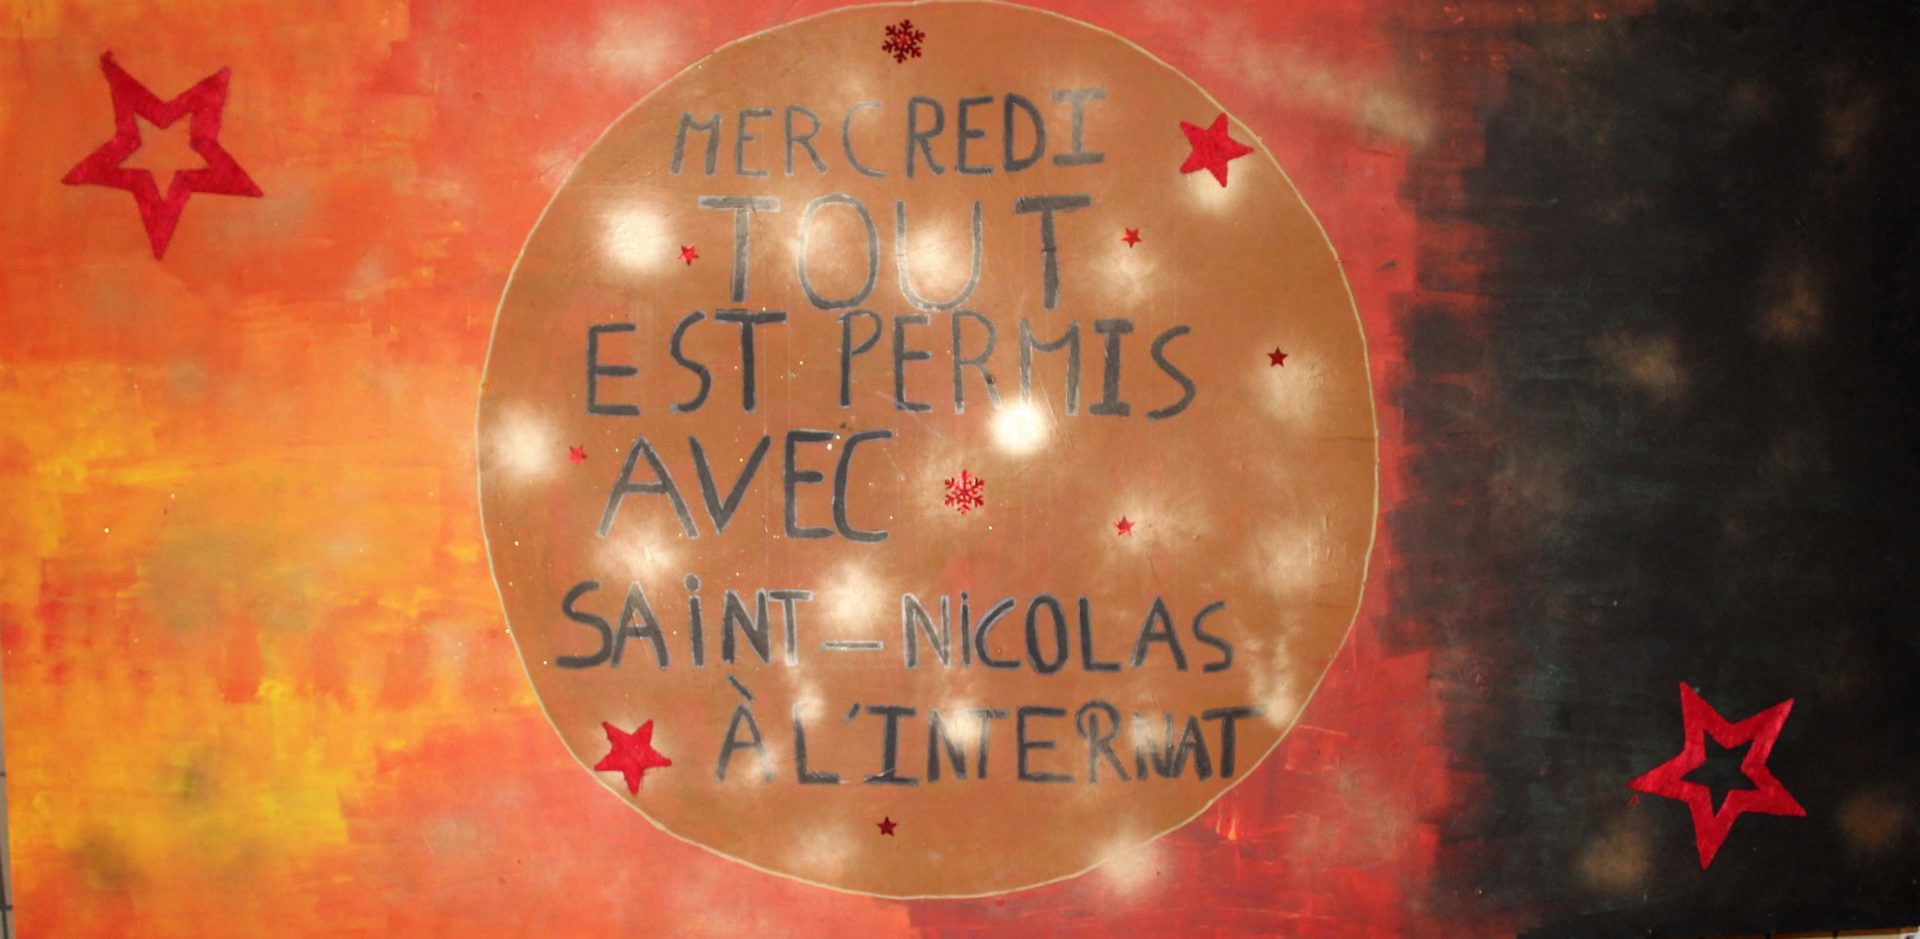 MERCREDI
TOUT
EST PERMIS
AVEC
SAINT-NICOLAS
À L'INTERNAT